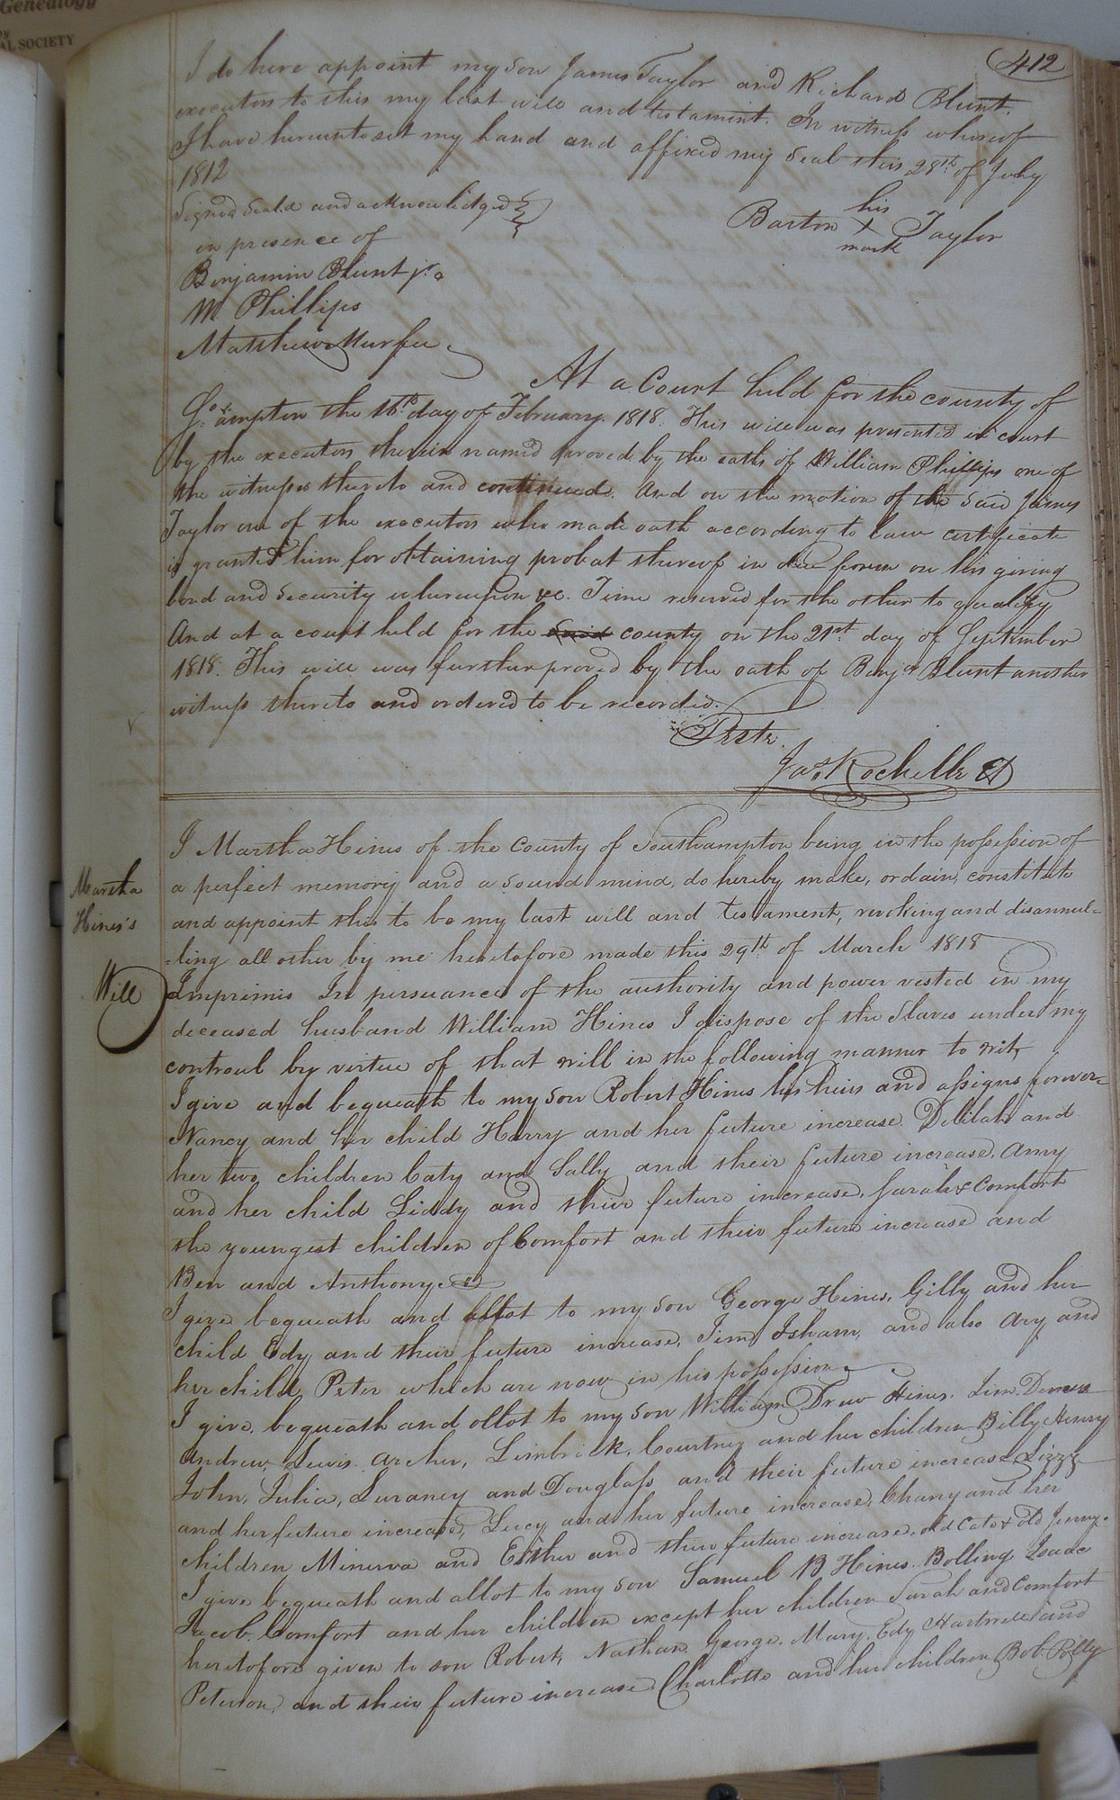 Genealogy
AL SOCIETY
412
I do here appoint my son James Taylor and Richard Blunt,
executors to this my last will and testament. In witness whereof
I have hereunto set my hand and affixed my seal this 28th of July
1812
Signed Seald and acknowledged
in presence of
his
Barton X Taylor
mark
Benjamin Blunt jr.
M Phillips
Matthew Murfee
At a Court held for the county of
So.ampton the 16th day of February 1818. This will was presented in court
by the executors therein named proved by the oath of William Phillips one of
the witnesses thereto and continued. And on the motion of the said James
Taylor one of the executors who made oath according to law certificate
is granted him for obtaining probat thereof in due form on his giving
bond and security whereupon &c. Time reserved for the other to qualify
And at a court held for the said county on the 21st day of September
1818. This will was further proved by the oath of Benja Blunt another
witness thereto and ordered to be recorded.
Teste.
Jas. Rochelle
Martha
Hines's
Will
I Martha Hines of the County of Southampton being in the possession of
a perfect memory and a sound mind, do hereby make, ordain, constitute
and appoint this to be my last will and testament, revoking and disannul=
=ling all other by me heretofore made this 29th of March 1818
Imprimis In persuance of the authority and power vested in my
deceased husband William Hines I dispose of the Slaves under my
controul by virtue of that will in the following manner to wit,
I give and bequeath to my son Robert Hines his heirs and assigns forever=
Nancy and her child Harry and her future increase. Delilah and
her two children Caty and Sally and their future increase. Amy
and her child Liddy and their future increase, Sarah & Comfort
the youngest children of Comfort and their future increase and
Ben and Anthony
I give bequeath and allot to my son George Hines, Gilly and her
child Edy and their future increase, Jim, Isham, and also Ary and
her child Peter which are now in his possession.
I give, bequeath and allot to my son William Drew Hines. Jim.
Andrew, Lewis. Archer, Limbrick, Courtney and her children Billy, Henry
John, Julia, Luraney and Douglass and their future increase, Lizzy
and her future increase, Lucy and her future increase, Chany and her
children Minerva and Esther and their future increase. old Cato & old Jenny.
I give bequeath and allot to my son Samuel B Hines. Bolling, Isaac
Jacob. Comfort and her children except her children Sarah and Comfort
heretofore given to son Robert, Nathan, George, Mary, Edy, Hartwell and
Peterson, and their future increase. Charlotte and her children Bob. Polly